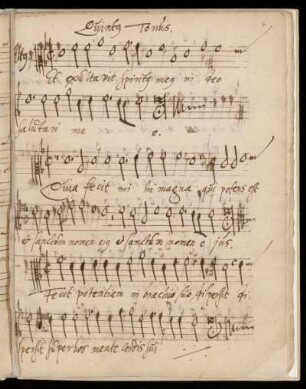 Quintus Tonus.
Altus
Et exultavit spiritus meus in deo
salutari me o.
Quia fecit mi hi magna qui potens est
et sanctum nomen eius et sanctum nomen e ius.
Fecit potentiam in brachio suo, dispersit di
spersit superbos mente cordis sui